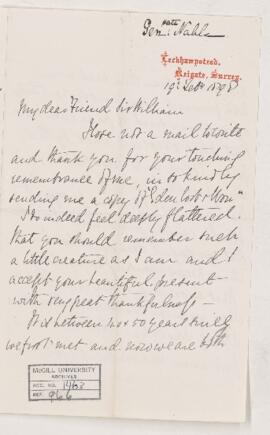 Genl Nable
Leckhampstead,
Reigate, Surrey.
19. Feb 1898
My dear Friend Sir William
I lose not a mail to write
and thank you for your touching
remembrance of me, in so kindly
sending me a copy of "Eden lost & Won"
I do indeed feel deeply flattered
that you should remember such
a little creature as I am and I
accept your beautiful present
with very great thankfulness -
It is between 40 & 50 years
we first met and now we are both
McGILL UNIVERSITY
ARCHIVES
ACC. NO. 1463
REF. 966